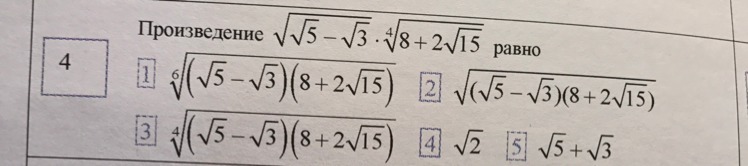 Произведение √(√5 − √3) · ⁴√(8 + 2√15) равно
4
1 ⁶√((√5 − √3)(8 + 2√15)) 2 √((√5 − √3)(8 + 2√15))
3 ⁴√((√5 − √3)(8 + 2√15)) 4 √2 5 √5 + √3